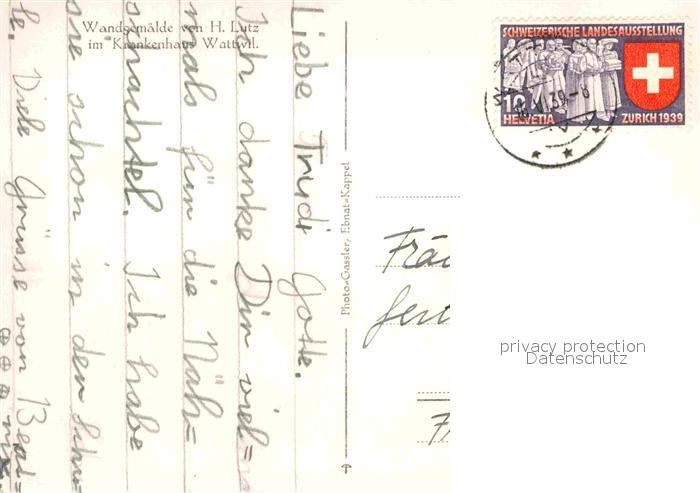 Wandgemälde von H. Lutz
im Krankenhaus Wattwil.
Liebe Trudi Gotte.
Ich danke Dir viel=
mals für die Näh=
schachtel. Ich habe
sie schon in der Schu=
le. Viele Grüsse von Beat=
Photo=Gassler, Ebnat=Kappel
SCHWEIZERISCHE LANDESAUSSTELLUNG
10
HELVETIA
ZURICH 1939
Fräu
privacy protection
Datenschutz